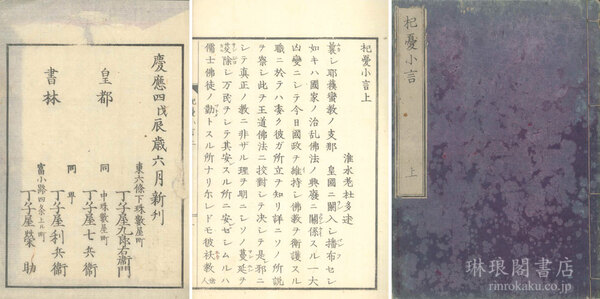 杞憂小言
上
杞憂小言上
淮水老杜多述
曩ニ耶穌蠻教ノ支那 皇國ニ闌入シ播布セシ
如キハ國家ノ治乱佛法ノ興衰ニ關係スル一大
凶變ニシテ今日國政ヲ維持シ佛教ヲ衛護スル
職ニ於テハ悉ク彼ガ所立ヲ知リ詳ニソノ所説
ヲ察シ此ヲ王道佛法ニ校對シテ決シテ是邪ニ
シテ真正ノ教ニ非ザル理ヲ明ニシソノ蔓延ヲ
除シ万民ヲシテ其安スル所ニ安ゼシムルハ
儒士佛徒ノ勤トスル所ナリ尓レドモ彼祆教人
慶應四戊辰歳六月新刋
皇都
書林
東六條下珠數屋町
丁子屋九郎右衛門
同 中珠數屋町
丁子屋七兵衛
同 所
丁子屋利兵衛
冨小路四条上ル町
丁子屋榮助
琳琅閣書店
rinrokaku.co.jp